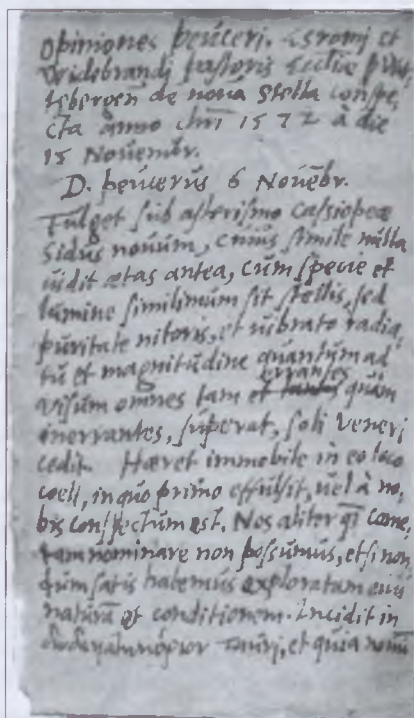 Opiniones peuceri, Esromi et
Widebrandi pastoris Ecclie
tebergen de noua Stella conspe,
cta anno chri 1572 à die
15 Nouembr.
D. peucerus 6 Nouēbr.
Fulget sub asterismo Cassiopeæ
sidus nouum, cuius simile nulla
uidit ætas antea, cum specie et
lumine simillimum sit stellis, sed
puritate nitoris, et uibrato radio,
et magnitudine quantum ad
errantes
uisum omnes tam et quàm
inerrantes, superat, soli Veneri
cedit. Hæret immobile in eo loco
coeli, in quo primo effulsit, uel à no,
bis conspectum est. Nos aliter come,
tam nominare non possumus, etsi non,
dum satis habemus exploratam eius
naturā et conditionem. Incidit in
Tauri, et quia